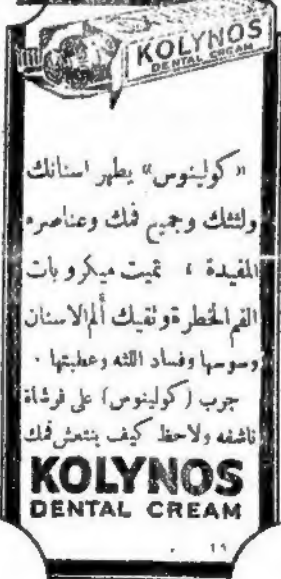 KOLYNOS
DENTAL CREAM
«كولينوس» يطهر اسنانك
ولثتك وجميع فمك وعناصره
المفيدة ، تميت ميكروبات
الفم الخطرة وتقيك ألم الاسنان
وسوسها وفساد اللثه وعطبتها .
جرب (كولينوس) على فرشاة
ناشفه ولاحظ كيف ينتعش فمك
KOLYNOS
DENTAL CREAM
١١